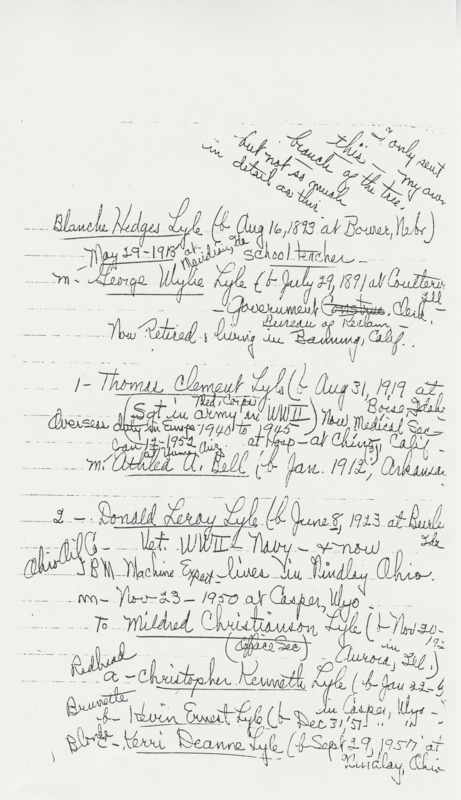 I only sent
this - my own
branch of the tree.
but not so much
in detail as this
Blanche Hedges Lyle (b Aug 16, 1893 at Bower, Nebr)
May 29-1918 at Meridian, Ida
School teacher -
m - George Wylie Lyle (b July 29, 1891 at Coulter Ill -
- Government Clerk.
Bureau of Reclam -
Now Retired & living in Banning, Calif.
1 - Thomas Clement Lyle (b Aug 31, 1919 at
Boise Idaho
(Sgt in army in WW II) Med. Corps
Now, Medical Sec -
Overseas duty in Europe 1940 to 1945
at Hosp - at Chino, Calif -
Jan 12-1952
at Yuma, Ariz
m. Athlea A. Bell (b Jan. 1912, (?) Arkansas
2 - Donald Leroy Lyle (b June 8, 1923 at Burley
Ida
Ohio Oil Co - Vet. WW II - Navy - & now
IBM Machine Expert - lives in Findlay Ohio.
m - Nov - 23 - 1950 at Casper, Wyo -
To Mildred Christianson Lyle (b Nov 20 -
(Office Sec)
in
Aurora, Ill.)
Redhead
a - Christopher Kenneth Lyle (b Jan 22 -
in Casper, Wyo -
Brunette
b - Kevin Ernest Lyle (b Dec 31, 51 - " in "
Blonde - Kerri Deanne Lyle (b Sept 29, 1957 at
Findlay, Ohio